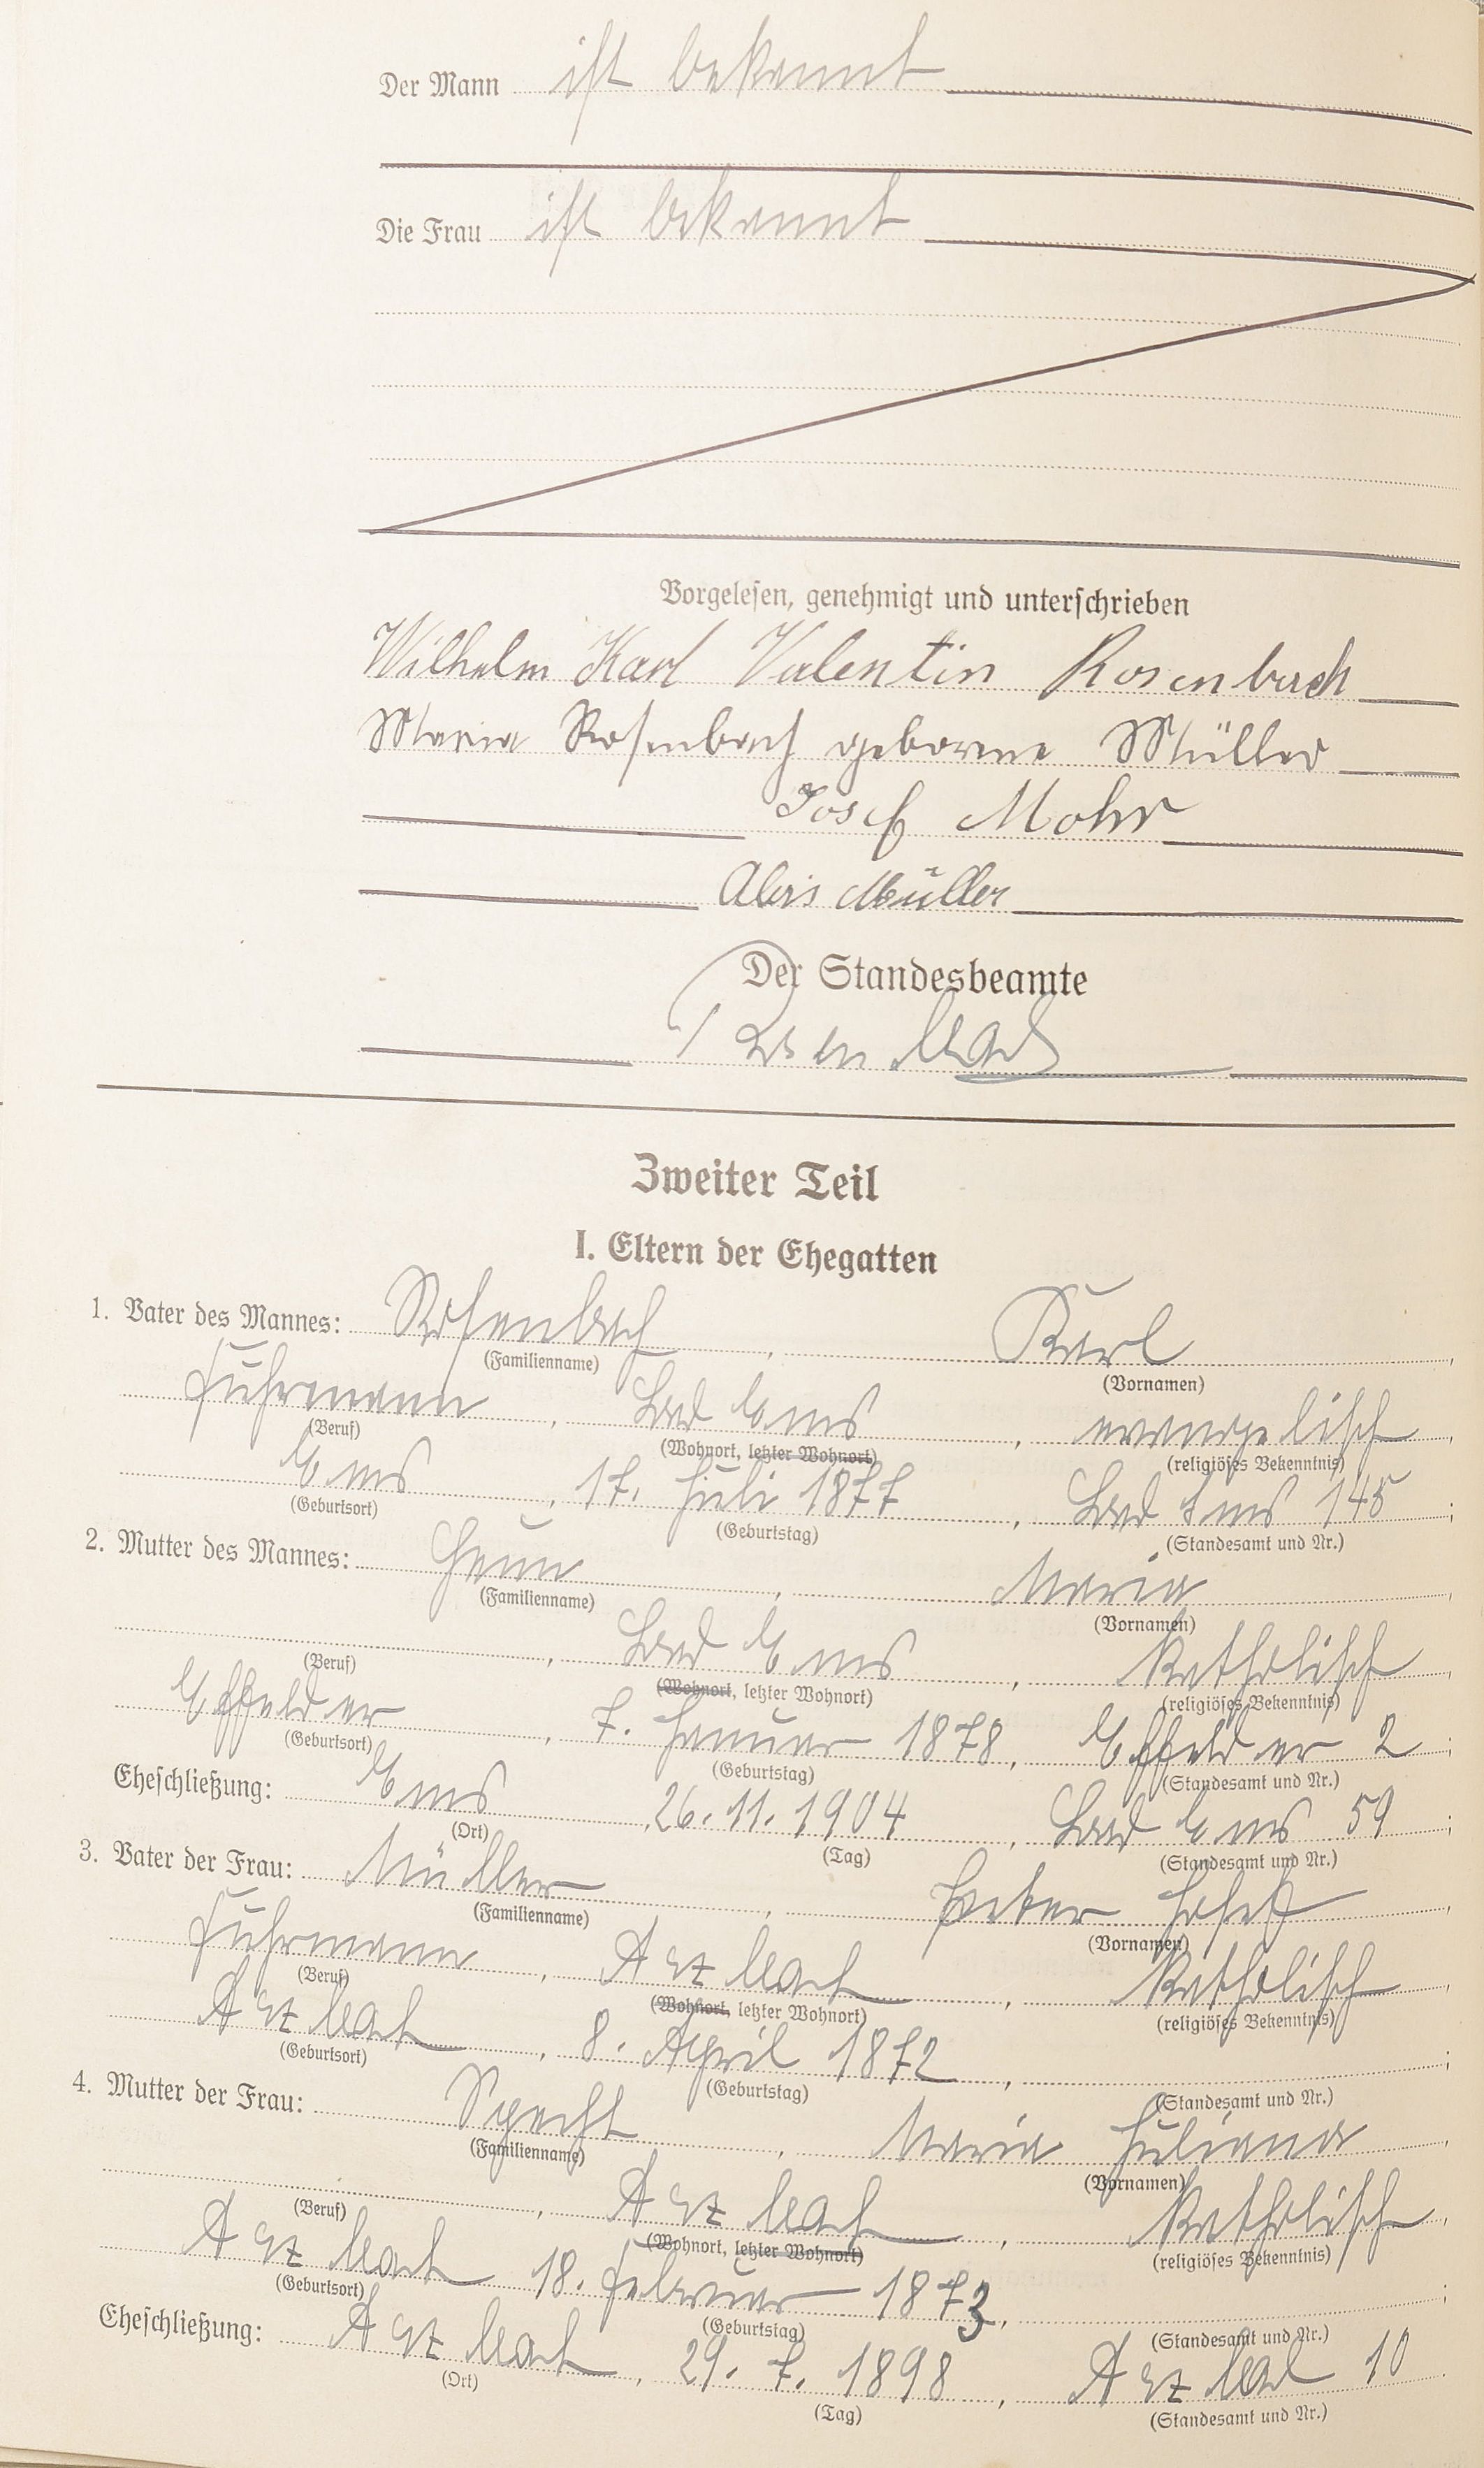 Der Mann ist bekannt
Die Frau ist bekannt
Vorgelesen, genehmigt und unterschrieben
Wilhelm Karl Valentin Rosenbach
Maria Rosenbach geborene Müller
Josef Mohr
Alois Müller
Der Standesbeamte
Zweiter Teil
I. Eltern der Ehegatten
1. Vater des Mannes: Rosenbach, Karl
(Familienname) (Vornamen)
Fuhrmann, Bad Ems, evangelisch
(Beruf) (Wohnort, letzter Wohnort) (religiöses Bekenntnis)
Ems, 17. Juli 1877, Bad Ems 145;
(Geburtsort) (Geburtstag) (Standesamt und Nr.)
2. Mutter des Mannes: Henn, Maria,
(Familienname) (Vornamen)
, Bad Ems, katholisch,
(Beruf) (Wohnort, letzter Wohnort) (religiöses Bekenntnis)
Effelder, 7. Januar 1878, Effelder 2;
(Geburtsort) (Geburtstag) (Standesamt und Nr.)
Eheschließung: Ems, 26. 11. 1904, Bad Ems 59;
(Ort) (Tag) (Standesamt und Nr.)
3. Vater der Frau: Müller, Josef,
(Familienname) (Vornamen)
Fuhrmann, Arzbach, katholisch,
(Beruf) (Wohnort, letzter Wohnort) (religiöses Bekenntnis)
Arzbach, 8. April 1872, ;
(Geburtsort) (Geburtstag) (Standesamt und Nr.)
4. Mutter der Frau: Specht, Maria Juliana,
(Familienname) (Vornamen)
, Arzbach, katholisch,
(Beruf) (Wohnort, letzter Wohnort) (religiöses Bekenntnis)
Arzbach 18. Februar 1873, ;
(Geburtsort) (Geburtstag) (Standesamt und Nr.)
Eheschließung: Arzbach, 29. 7. 1898, Arzbach 10.
(Ort) (Tag) (Standesamt und Nr.)